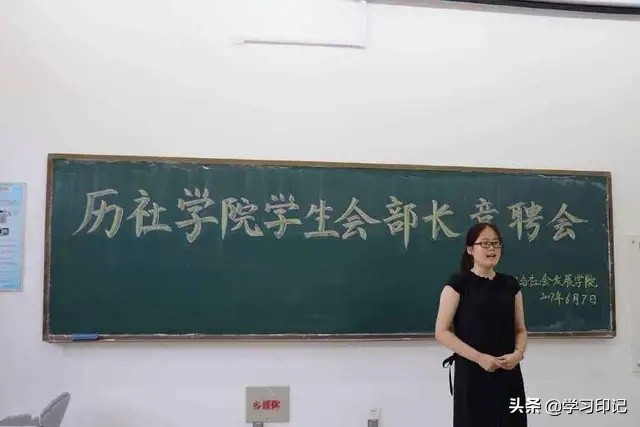 历社学院学生会部长竞聘会
与社会发展学院
2017年6月7日
多媒体
头条 @学习印记